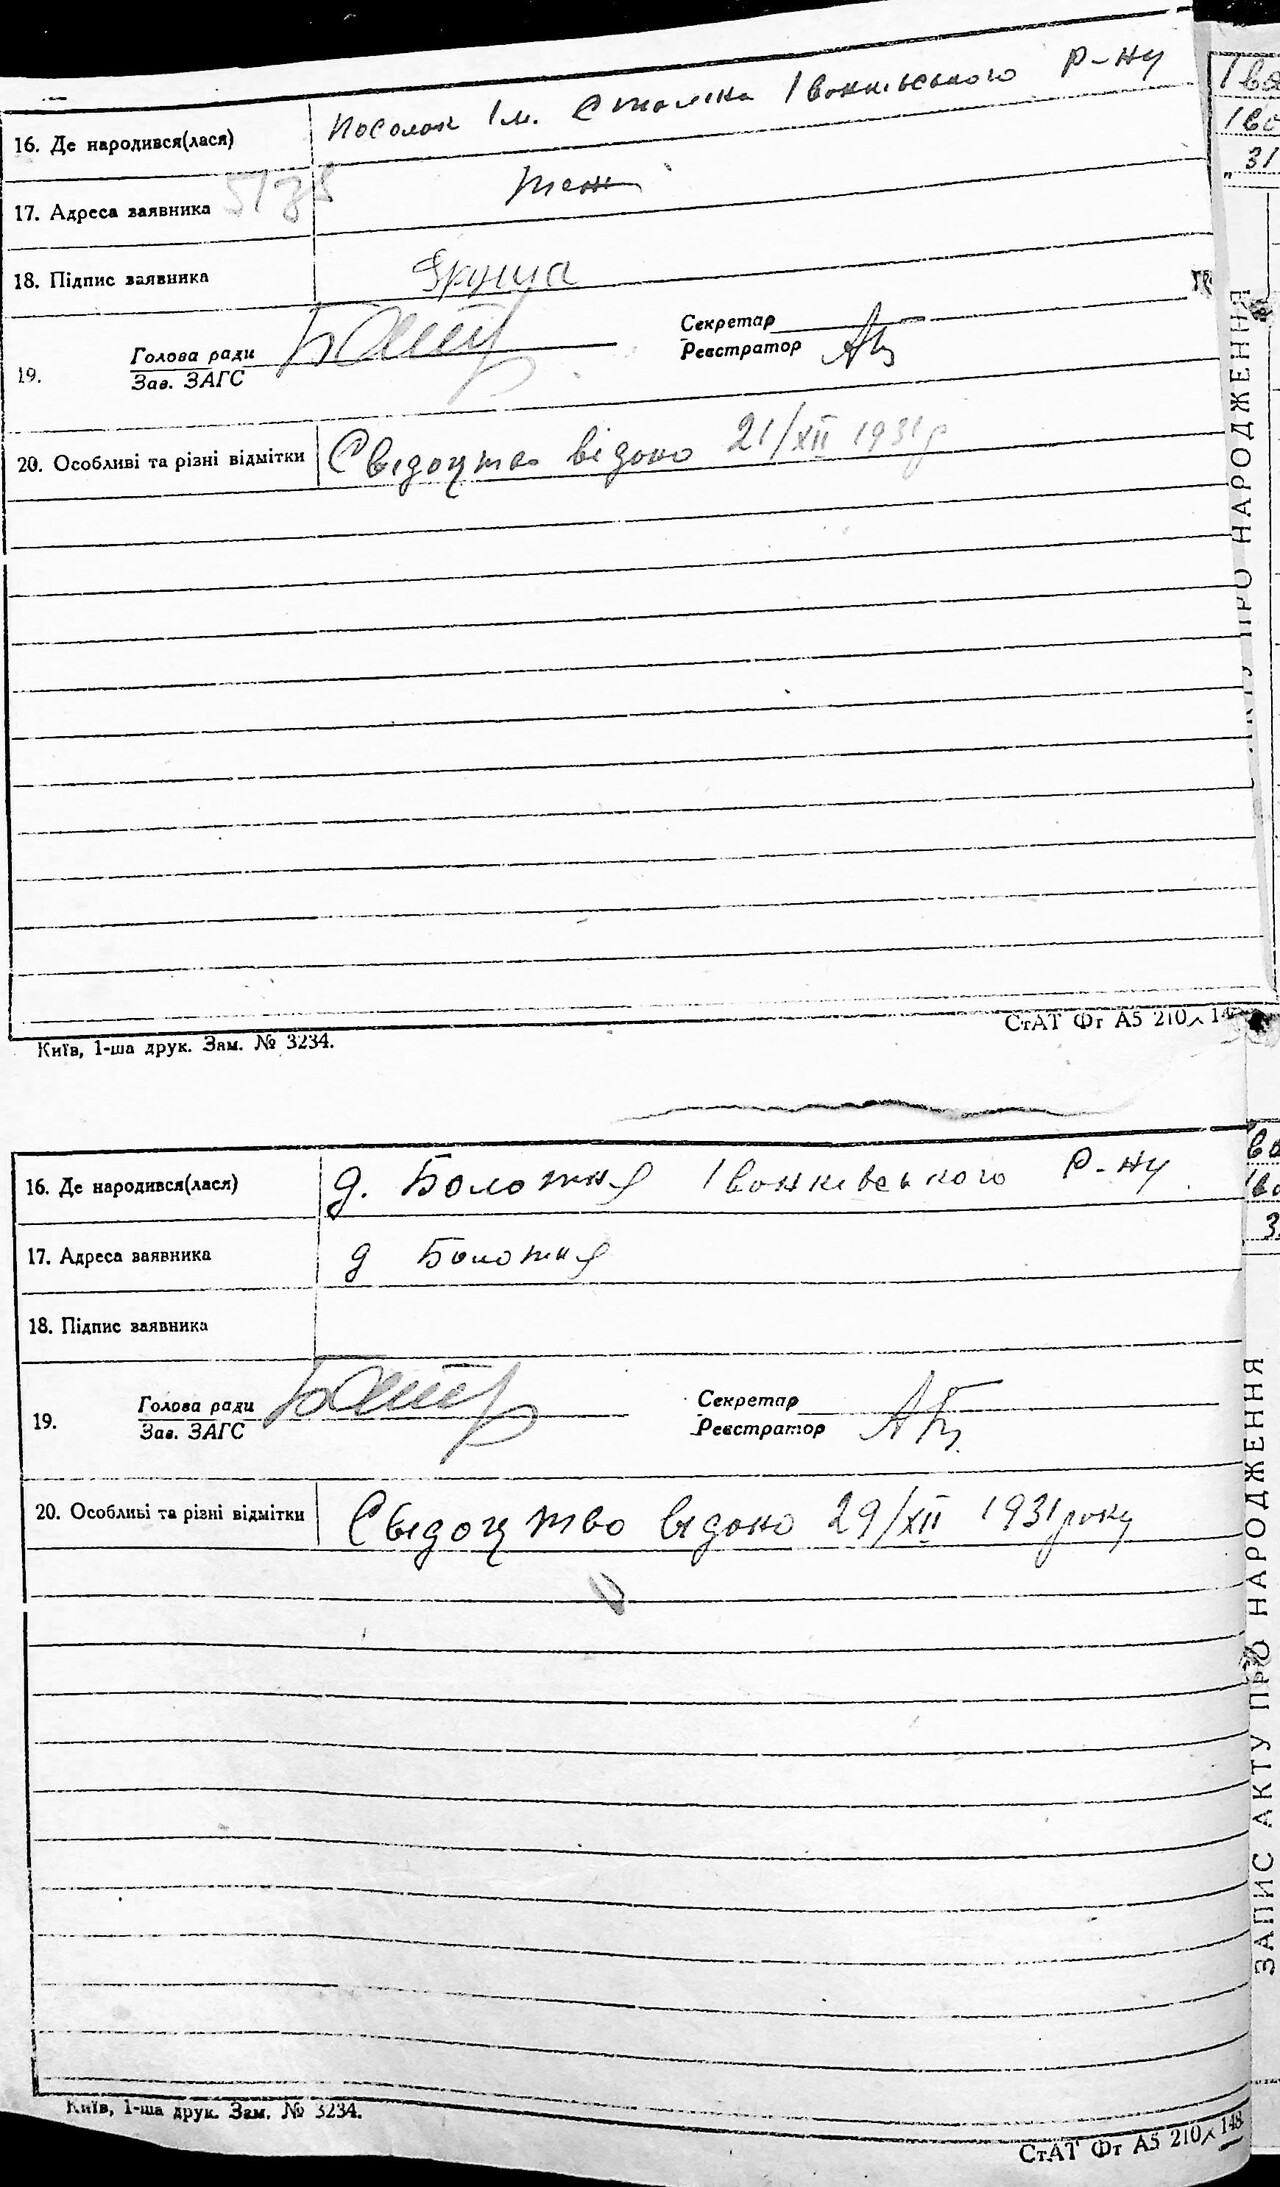 16. Де народився(лася) Посолок Ім. Сталіна Іванківського Р-ну
17. Адреса заявника теж
18. Підпис заявника
Секретар
Голова ради
Реєстратор
19.
Зав. ЗАГС
20. Особливі та різні відмітки Свідоцтво відоно 21/XII 1931р
Київ, 1-ша друк. Зам. № 3234.
СтАТ Фт А5 210 × 14
16. Де народився(лася) д. Болотня Іванківського Р-ну
17. Адреса заявника д Болотня
18. Підпис заявника
Голова ради
Секретар
19.
Зав. ЗАГС
Реєстратор
20. Особливі та різні відмітки Свідоцтво відоно 29/XII 1931 року
Київ, 1-ша друк. Зам. № 3234.
СтАТ Фт А5 210 × 148
ЗАПИС АКТУ ПРО НАРОДЖЕННЯ